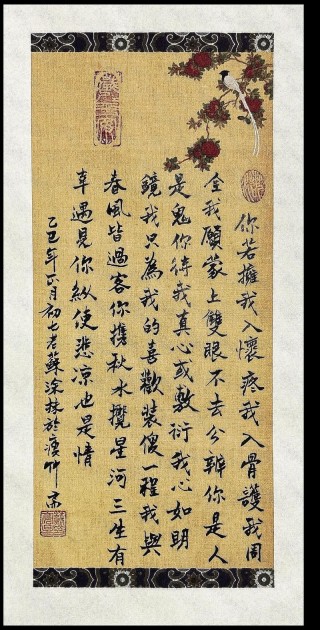 你若擁我入懷疼我入骨護我周
全我願蒙上雙眼不去分辨你是人
是鬼你待我真心或敷衍我心如明
鏡我只為我的喜歡裝傻一程我與
春風皆過客你攜秋水攬星河三生有
幸遇見你縱使悲涼也是情
乙巳年六月初七老蘇涂抹於